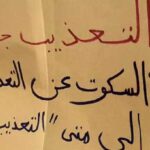 التعذيب
"السكوت عن
الى متى "التعذيب